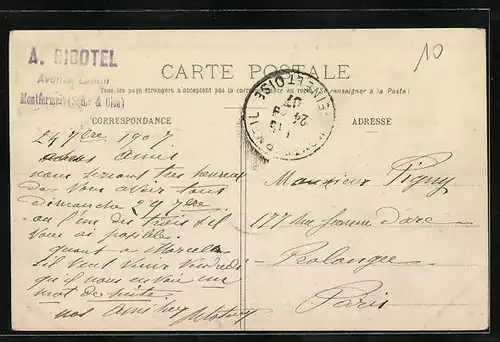 A. BIBOTEL
Avenue
Montfermeil (Seine & Oise)
10
CARTE POSTALE
Tous les pays étrangers n'acceptent pas la correspondance au recto, se renseigner à la Poste)
CORRESPONDANCE
ADRESSE
SEINE ET OISE
24
07
24 7bre 1907
amis
nous serons très heureux
de vous avoir tous
dimanche 29 7bre
ou l'un des trois s'il
vous ai possible
quant a Marcel
s'il veut venir
qu'il nous envoie un
mot de suite
nos amitiés
Monsieur Pigny
177 rue Jeanne d'arc
Prolongée
Paris